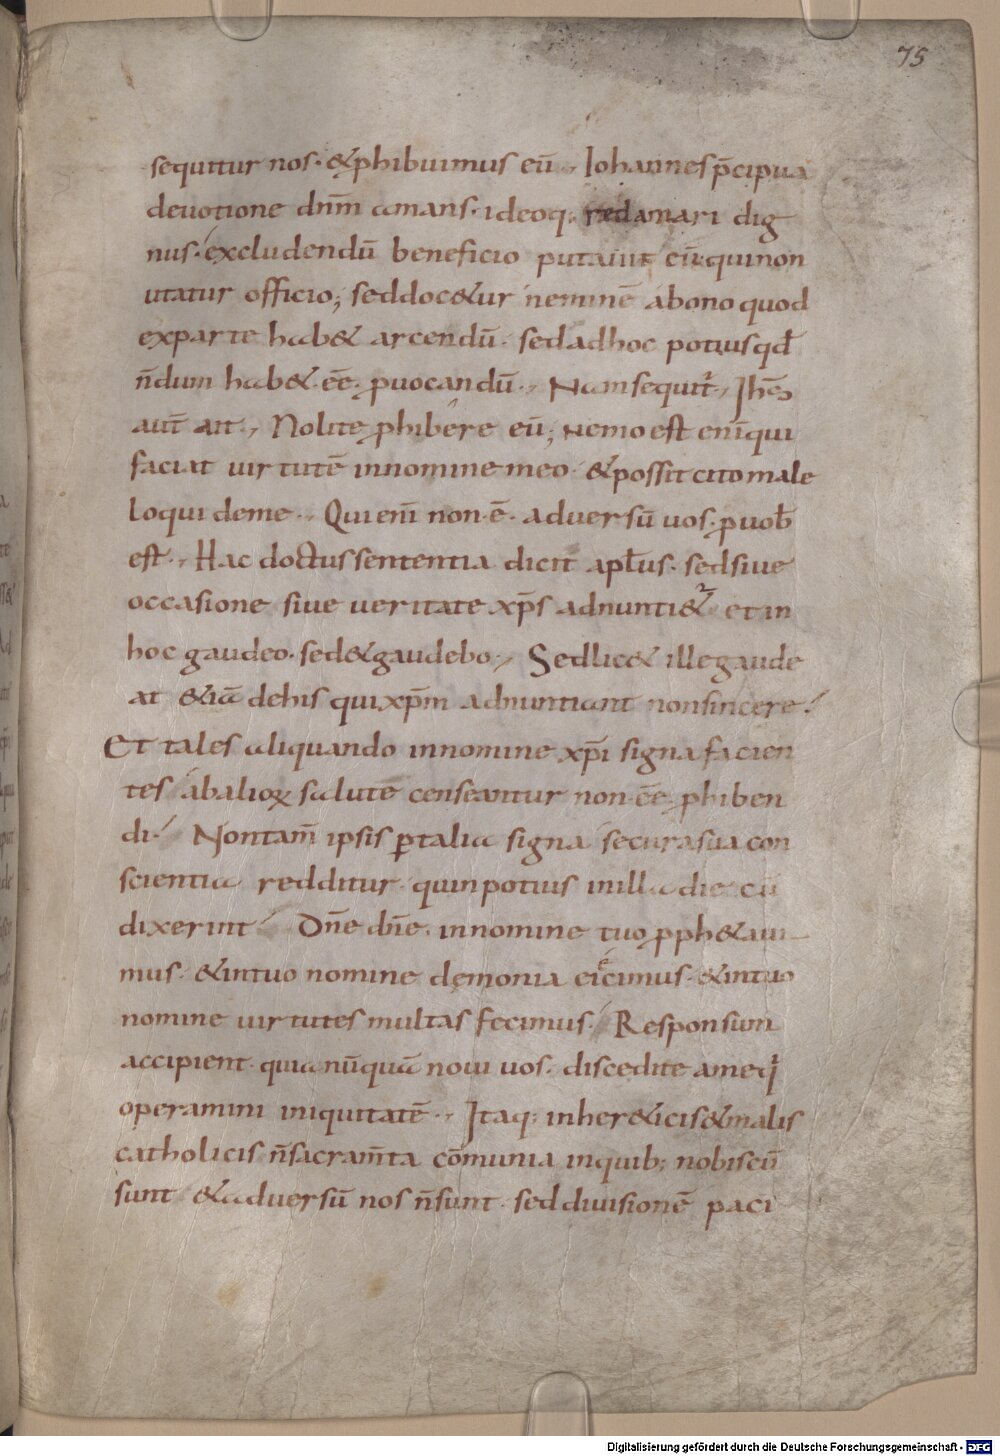 75
sequitur nos. & phibuimus eū., Iohannes p̄cipua
deuotione dnm̄ amans. ideoq; redamari dig
nus. excludendū beneficio putauit eū qui non
utatur officio; sed doc&ur neminē a bono quod
ex parte hab& arcendū. sed ad hoc potius qđ
n̄dum hab&. eē. puocandū., Nam sequit̄., Jhs̄
aut̄ ait., Nolite phibere eū; nemo est eni̅ qui
faciat uirtutē in nomine meo. & possit cito male
loqui de me., Qui eni̅ non ē. aduersū uos. p uob̄
est., Hac doctus sententia dicit apl̄us. sed siue
occasione siue ueritate xp̄s adnunti&ur et in
hoc gaudeo. sed & gaudebo., Sed lic& ille gaude
at &iā de his qui xp̄m adnuntiant non sincere.
Et tales aliquando in nomine xp̄i signa facien
tes ab alioꝝ salutē censeantur non eē. phiben
di. Non tam̄ ipsis ꝑ talia signa secura sua con
scientia redditur. quin potius in illa die cū
dixerint. Dn̄e dn̄e. in nomine tuo pph&aui
mus. & in tuo nomine dęmonia eiecimus. & in tuo
nomine uirtutes multas fecimus. Responsum
accipient. quia nūquā noui uos. discedite a me q̍
operamini iniquitatē., Itaq; in her&icis & malis
catholicis n̄ sacram̄ta cōmunia in quib; nobiscū
sunt & aduersū nos n̄ sunt. sed diuisionē paci
Digitalisierung gefördert durch die Deutsche Forschungsgemeinschaft - DFG